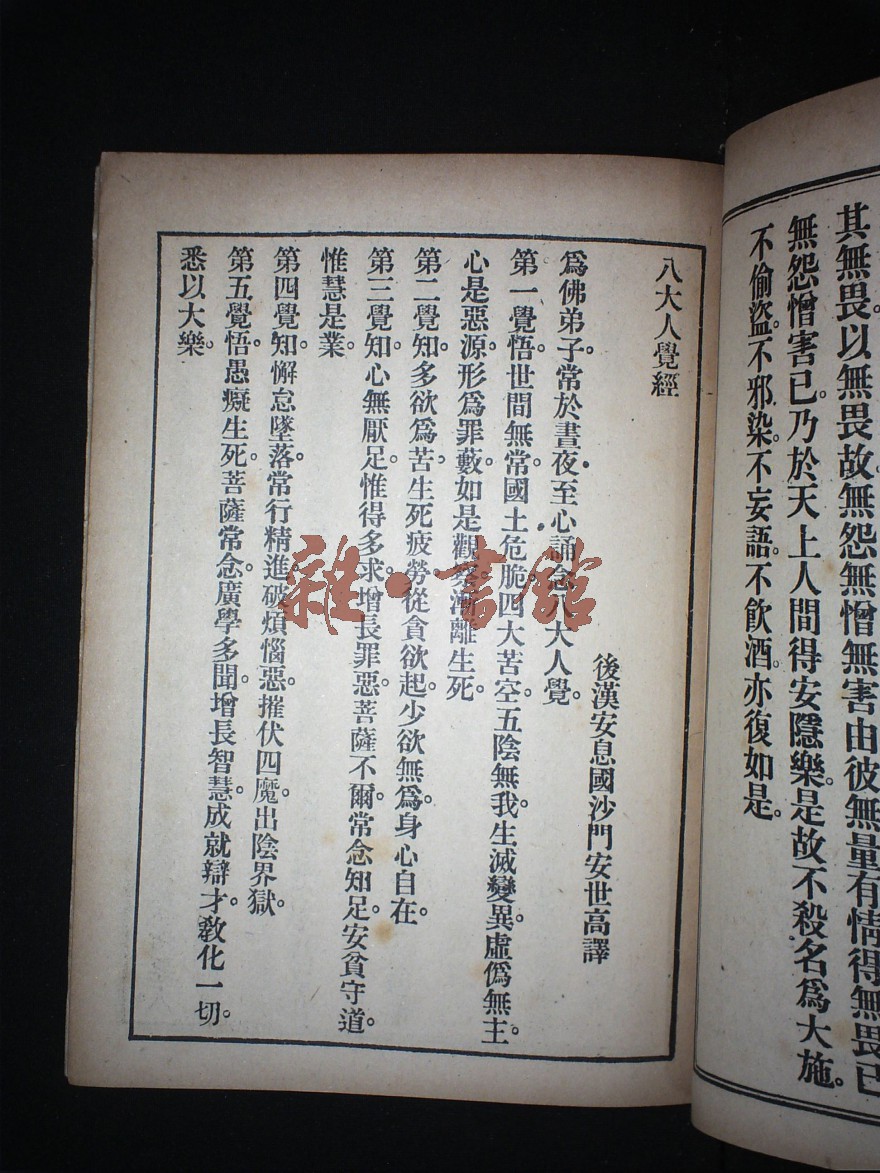 其無畏。以無畏故。無怨無憎無害。由彼無量有情得無畏已
無怨憎害已。乃於天上人間得安隱樂。是故不殺名爲大施。
不偷盜。不邪染。不妄語。不飲酒。亦復如是。
八大人覺經
後漢安息國沙門安世高譯
爲佛弟子。常於晝夜。至心誦念八大人覺。
第一覺悟。世間無常。國土危脆。四大苦空。五陰無我。生滅變異。虛僞無主。
心是惡源。形爲罪藪。如是觀察。漸離生死。
第二覺知。多欲爲苦。生死疲勞。從貪欲起。少欲無爲。身心自在。
第三覺知。心無厭足。惟得多求。增長罪惡。菩薩不爾。常念知足。安貧守道。
惟慧是業。
第四覺知。懈怠墜落。常行精進。破煩惱惡。摧伏四魔。出陰界獄。
第五覺悟。愚癡生死。菩薩常念。廣學多聞。增長智慧。成就辯才。教化一切。
悉以大樂。
雜·書館